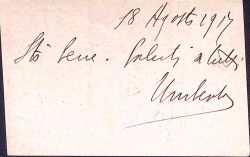 18 Agosto 1917
Sto bene. Saluti a tutti
Umberto